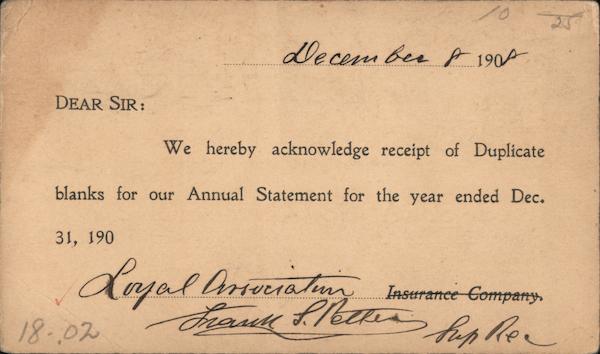 10 25
December 8 1908
DEAR SIR:
We hereby acknowledge receipt of Duplicate
blanks for our Annual Statement for the year ended Dec.
31, 190
Loyal Association Insurance Company.
Frank S. Petter
Sup Rec
18-.02